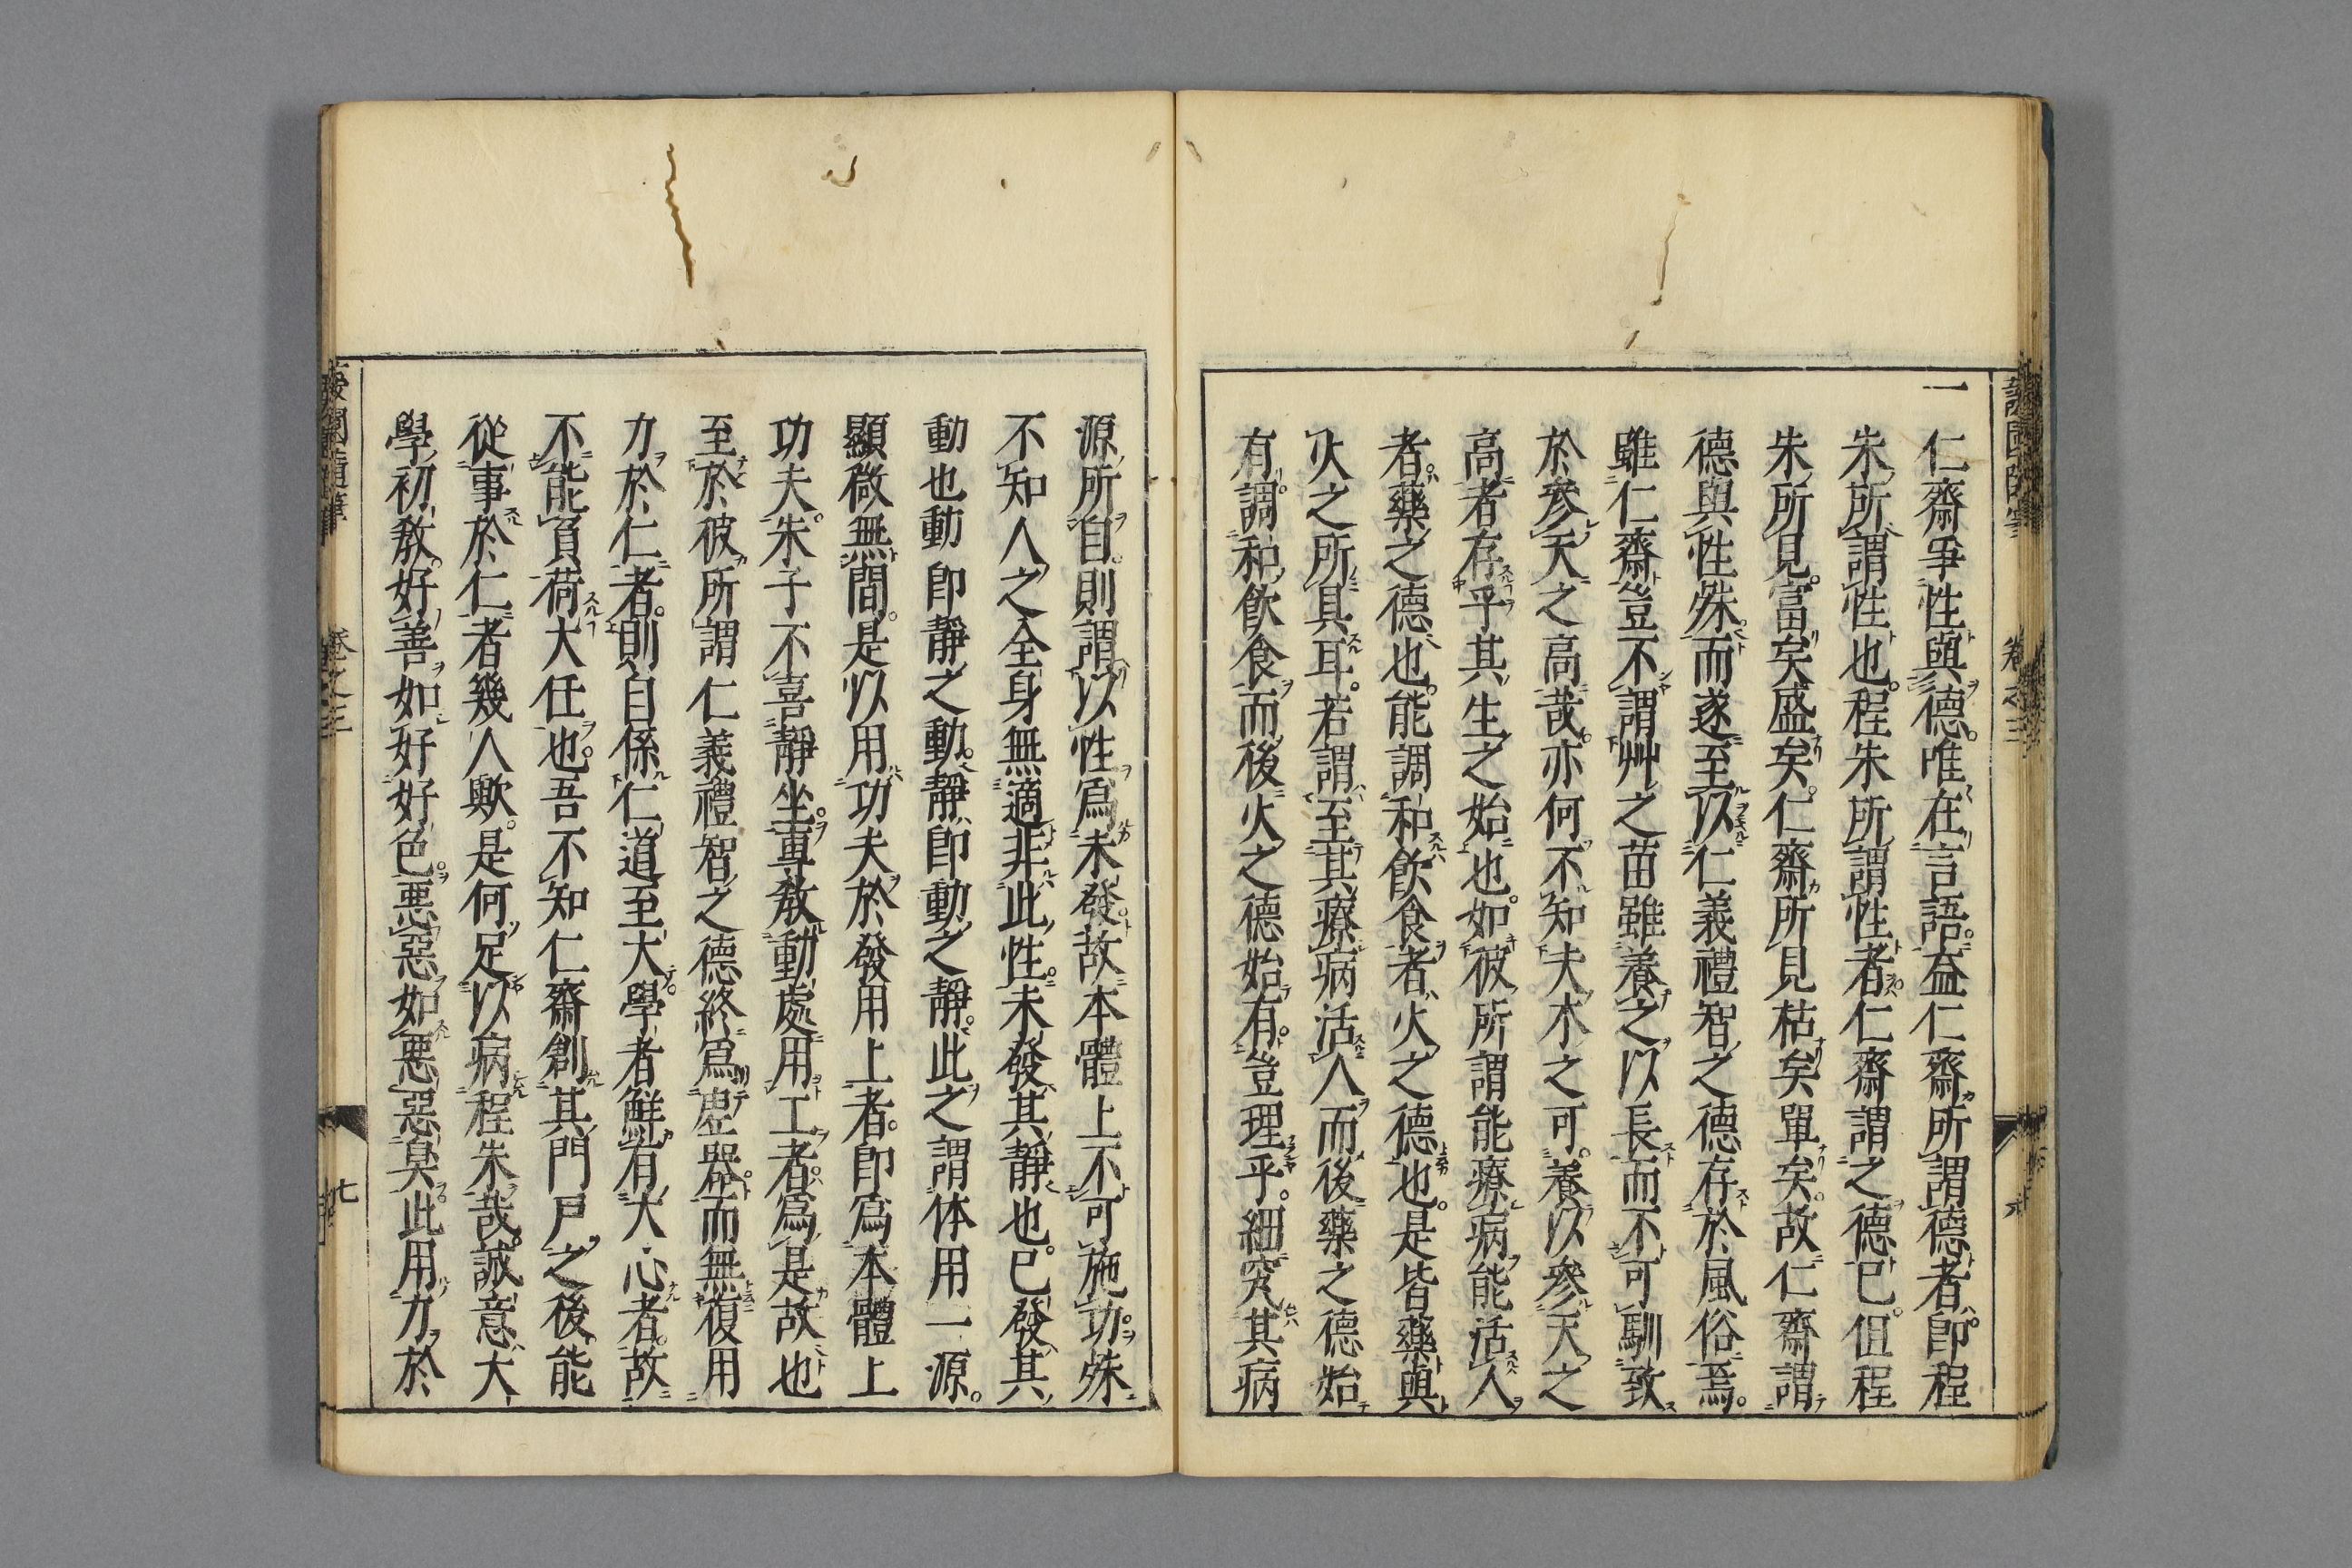 一 仁齋爭性與德唯在言語益仁齋所謂德者即程
朱所謂性也程朱所謂性者仁齋謂之德巳但程
朱所見富矣盛矣仁齋所見枯矣單矣故仁齋謂
德與性殊而遂至以仁義禮智之德存於風俗焉
雖仁齋豈不謂艸之苗雖養之以長而不可馴致
於參天之高哉亦何不知夫木之可養以參天之
高者存乎其生之始也如彼所謂能療病能活人
者藥之德也能調和飲食者火之德也是皆藥與
火之所具耳若謂至其療病活人而後藥之德始
有調和飲食而後火之德始有豈理乎細究其病
源所自則謂以性爲未發故本體上不可施功殊
不知人之全身無適非此性未發其靜也已發其
動也動即靜之動靜即動之靜此之謂体用一源
顯微無間是以用功夫於發用上者即爲本體上
功夫朱子不喜靜坐專敎動處用工者爲是故也
至於彼所謂仁義禮智之德終爲虛器而無復用
力於仁者則自係仁道至大學者鮮有大心者故
不能負荷大任也吾不知仁齋創其門戸之後能
從事於仁者幾人歟是何足以病程朱哉誠意大
學初敎好善如好好色惡惡如惡惡臭此用力於
卷之三
七